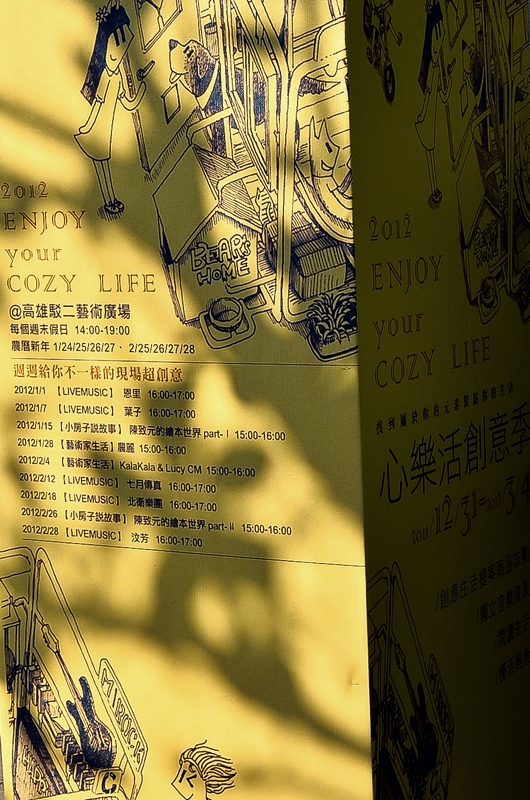 BEAR'S
HOME
2012
ENJOY
your
COZY LIFE
@高雄駁二藝術廣場
每個週末假日 14:00-19:00
農曆新年 1/24/25/26/27 · 2/25/26/27/28
週週給你不一樣的現場超創意
2012/1/1 【LIVEMUSIC】 恩里 16:00-17:00
2012/1/7 【LIVEMUSIC】 葉子 16:00-17:00
2012/1/15 【小房子說故事】 陳致元的繪本世界 part- I 15:00-16:00
2012/1/28 【藝術家生活】農麗 15:00-16:00
2012/2/4 【藝術家生活】KalaKala & Lucy CM 15:00-16:00
2012/2/12 【LIVEMUSIC】 七月傳真 16:00-17:00
2012/2/18 【LIVEMUSIC】 北衛樂團 16:00-17:00
2012/2/26 【小房子說故事】 陳致元的繪本世界 part- II 15:00-16:00
2012/2/28 【LIVEMUSIC】 汶芳 16:00-17:00
2012
ENJOY
your
COZY LIFE
找到屬於你的元素製造你的生活
心樂活創意季
2011/12/31-2012/3/4
/創意生活提案商品市集
/獨立音樂發
/閱讀生
/慢活